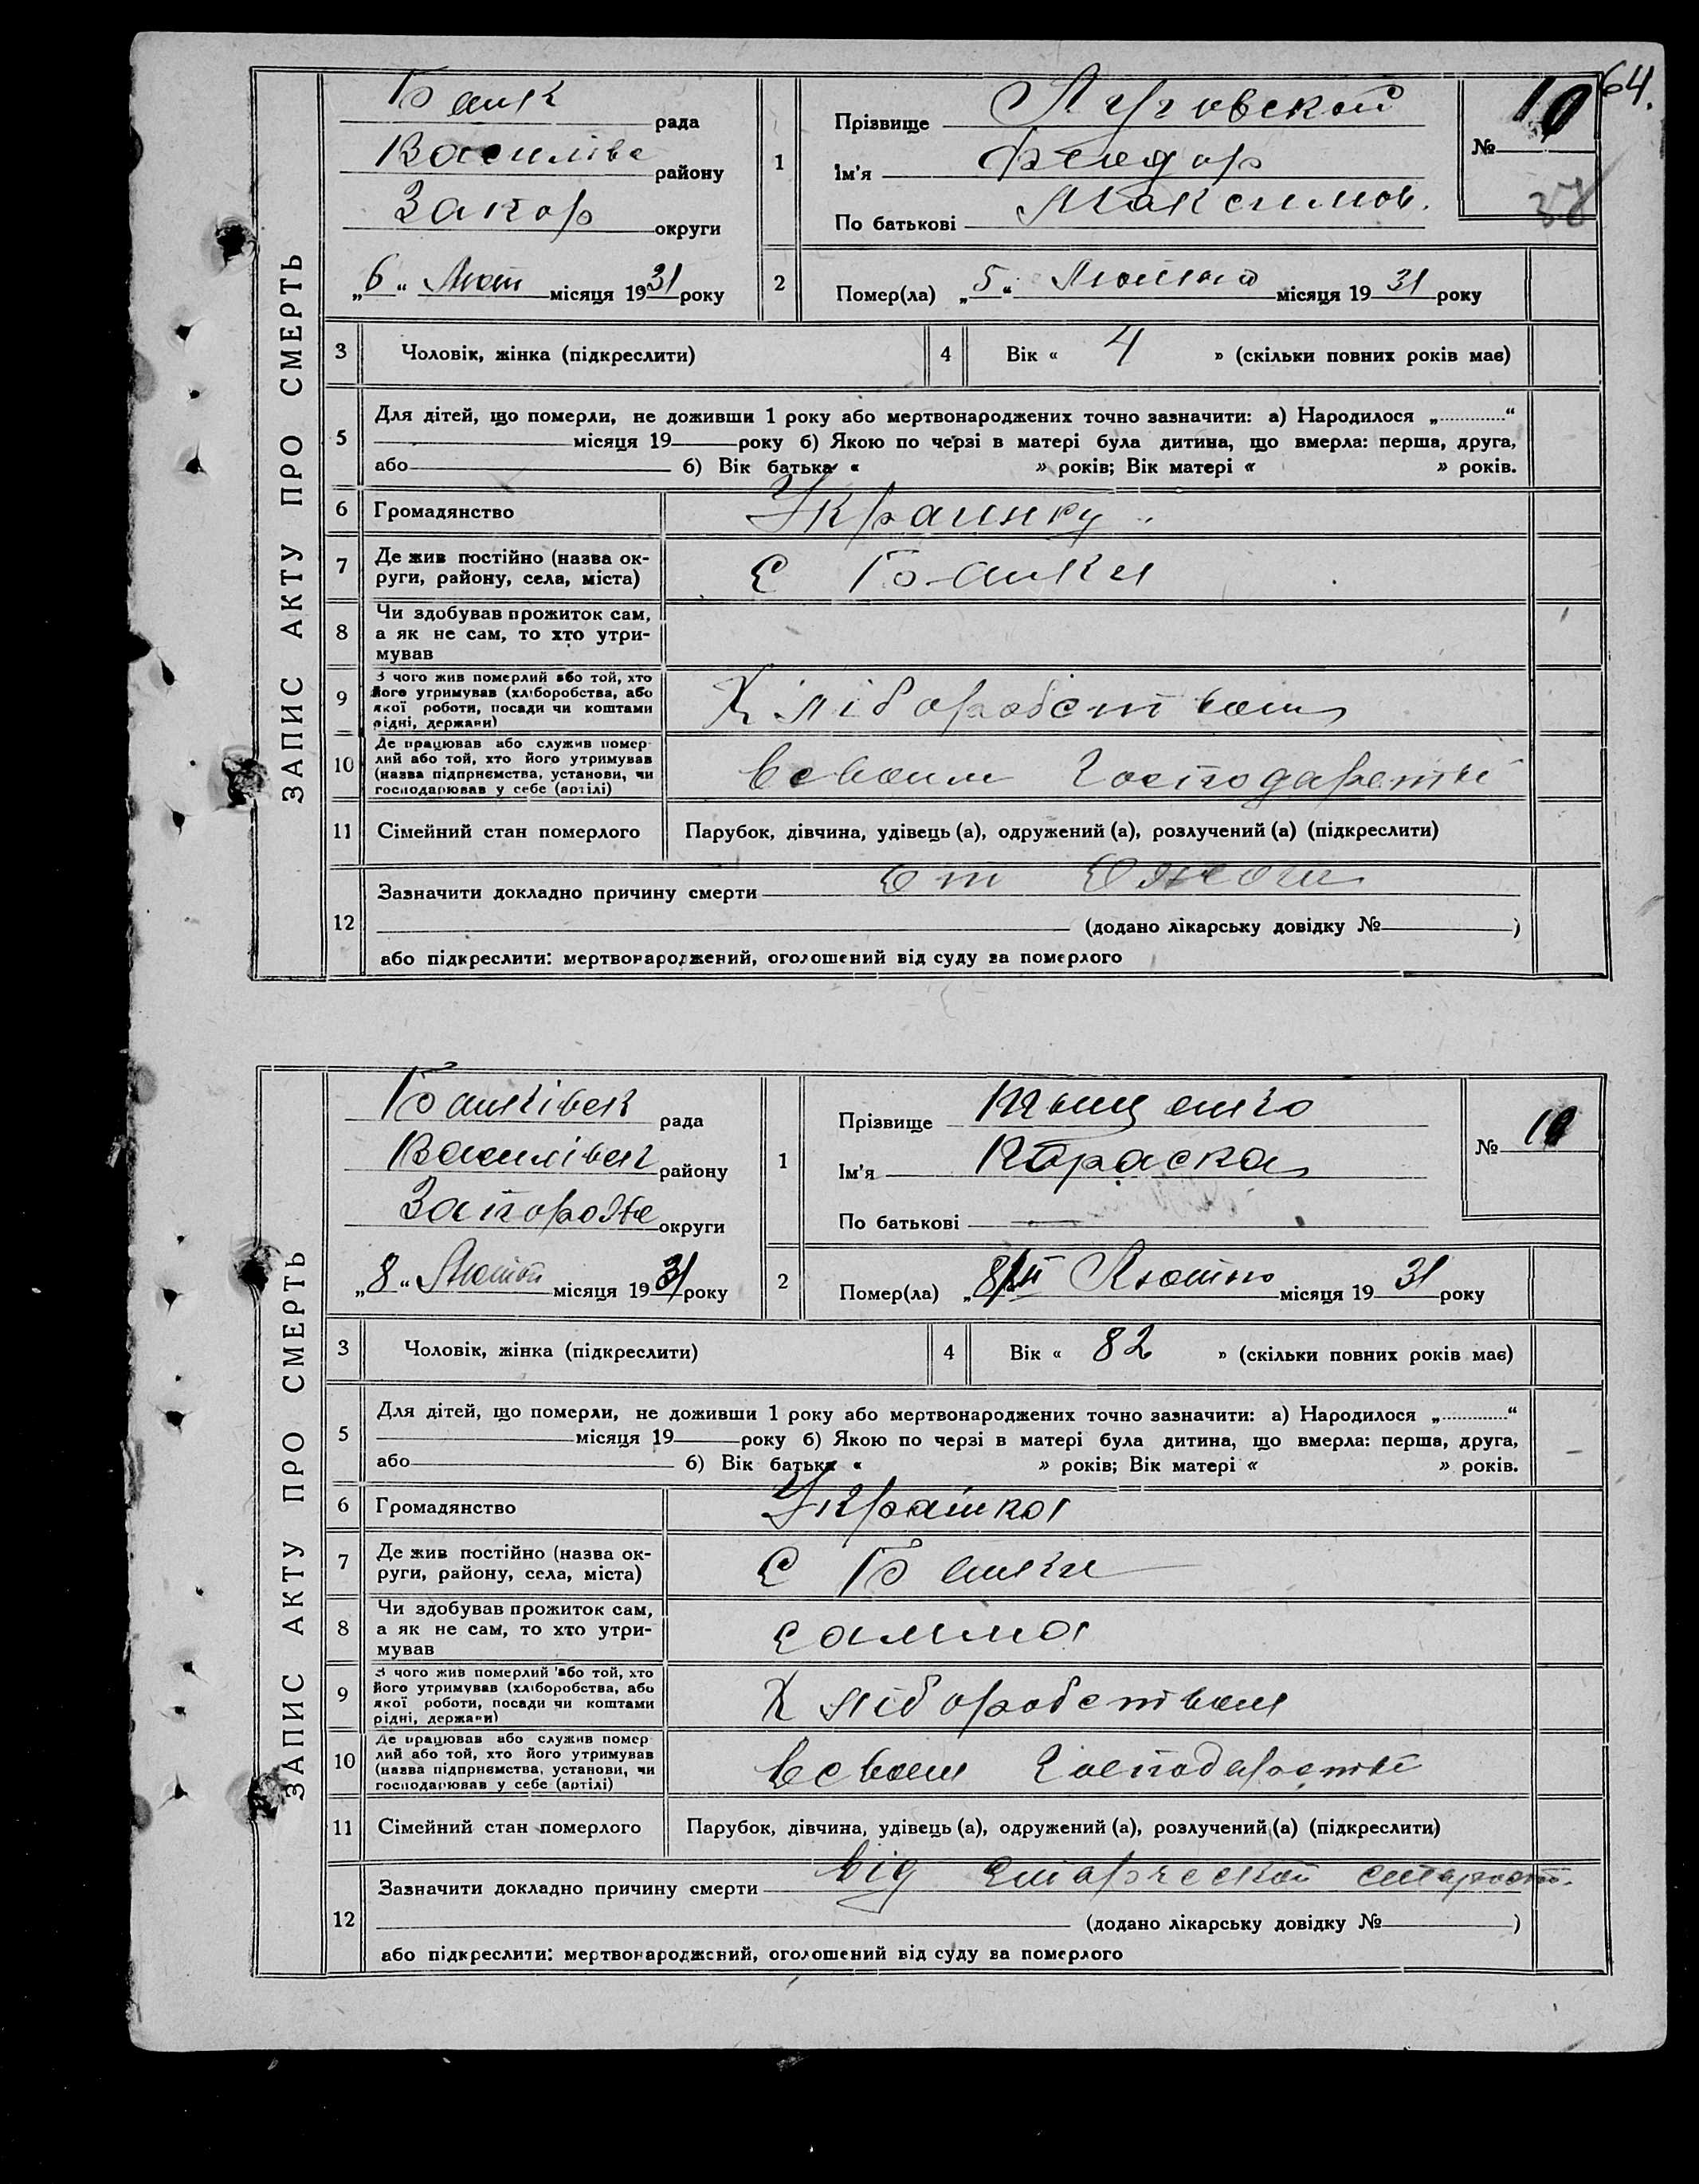 64.
ЗАПИС АКТУ ПРО СМЕРТЬ
Банк рада
Василівс району
Запор округи
„6“ Лют місяця 1931 року
1
Прізвище
Ім'я Феодор
По батькові Максимов.
№ 10
37
2
Помер(ла) „5“ Лютого місяця 1931 року
3 Чоловік, жінка (підкреслити)
4 Вік « 4 » (скільки повних років має)
5
Для дітей, що померли, не доживши 1 року або мертвонароджених точно зазначити: а) Народилося „ “
місяця 19 року б) Якою по черзі в матері була дитина, що вмерла: перша, друга,
або б) Вік батька « » років; Вік матері « » років.
6 Громадянство
7 Де жив постійно (назва ок-
руги, району, села, міста) С Банки
8 Чи здобував прожиток сам,
а як не сам, то хто утри-
мував
9 З чого жив померлий або той, хто
його утримував (хліборобства, або
якої роботи, посади чи коштами
рідні, держави) Хліборобством
10 Де працював або служив помер-
лий або той, хто його утримував
(назва підприємства, установи, чи
господарював у себе (артілі) В своим Господарстві
11 Сімейний стан померлого
Парубок, дівчина, удівець (а), одружений (а), розлучений (а) (підкреслити)
12
Зазначити докладно причину смерти От
(додано лікарську довідку № )
або підкреслити: мертвонароджений, оголошений від суду за померлого
ЗАПИС АКТУ ПРО СМЕРТЬ
Банківск рада
Василівск району
Запороже округи
„8“ Лютой місяця 1931 року
1
Прізвище Тыщенко
Ім'я Параска
По батькові —
№
2
Помер(ла) „8/II Лютого місяця 1931 року
3 Чоловік, жінка (підкреслити)
4 Вік « 82 » (скільки повних років має)
5
Для дітей, що померли, не доживши 1 року або мертвонароджених точно зазначити: а) Народилося „ “
місяця 19 року б) Якою по черзі в матері була дитина, що вмерла: перша, друга,
або б) Вік батька « » років; Вік матері « » років.
6 Громадянство Українка
7 Де жив постійно (назва ок-
руги, району, села, міста) С Банки
8 Чи здобував прожиток сам,
а як не сам, то хто утри-
мував самма
9 З чого жив померлий або той, хто
його утримував (хліборобства, або
якої роботи, посади чи коштами
рідні, держави) Хліборобством
10 Де працював або служив помер-
лий або той, хто його утримував
(назва підприємства, установи, чи
господарював у себе (артілі) В своем Господарстві
11 Сімейний стан померлого
Парубок, дівчина, удівець (а), одружений (а), розлучений (а) (підкреслити)
12
Зазначити докладно причину смерти від старческой старост.
(додано лікарську довідку № )
або підкреслити: мертвонароджений, оголошений від суду за померлого